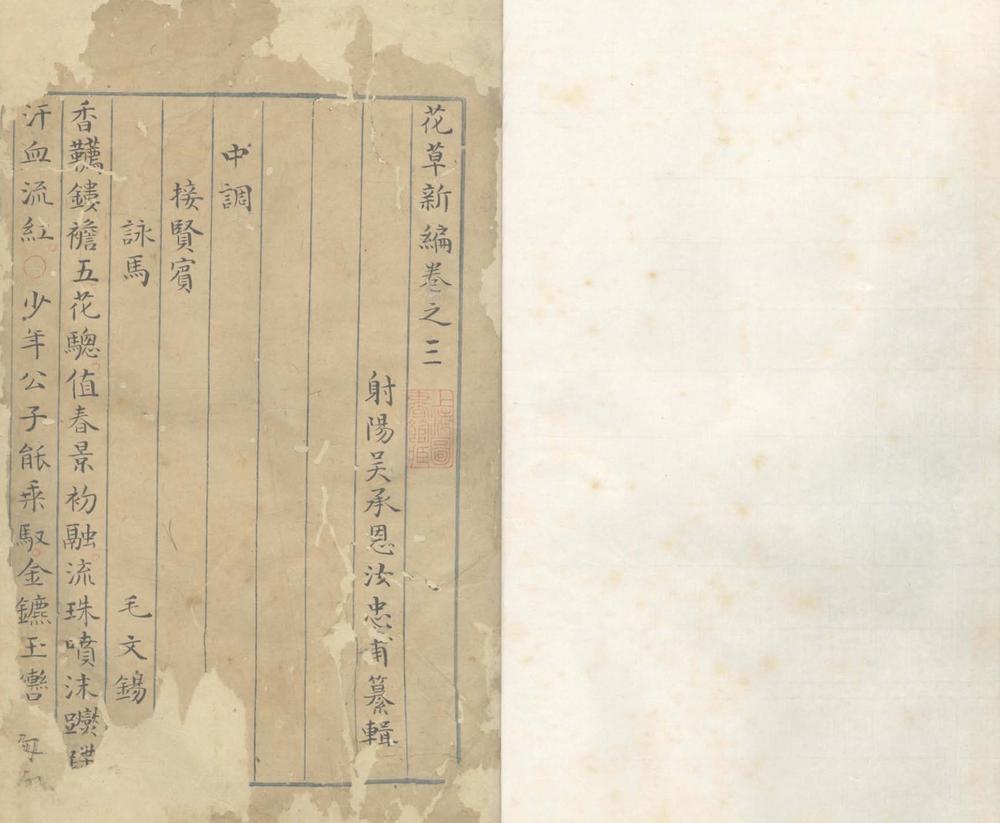 花草新編卷之三
射陽吳承恩汝忠甫纂輯
中調
接賢賓
詠馬 毛文錫
香韉鏤襜五花驄值春景初融流珠噴沫躞蹀
汗血流紅〇少年公子能乘馭金鑣玉轡